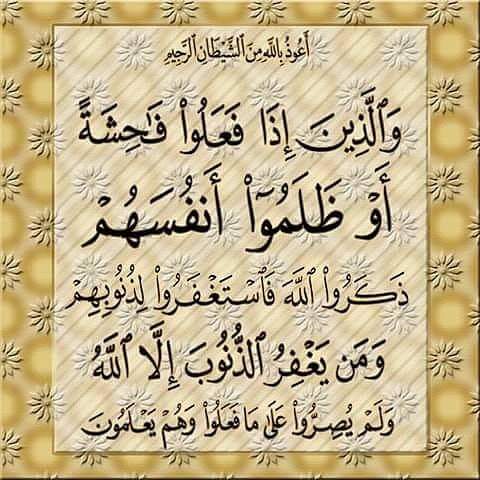 أَعُوذُ بِاللَّهِ مِنَ الشَّيْطَانِ الرَّجِيمِ
وَٱلَّذِينَ إِذَا فَعَلُوا۟ فَـٰحِشَةً
أَوْ ظَلَمُوٓا۟ أَنفُسَهُمْ
ذَكَرُوا۟ ٱللَّهَ فَٱسْتَغْفَرُوا۟ لِذُنُوبِهِمْ
وَمَن يَغْفِرُ ٱلذُّنُوبَ إِلَّا ٱللَّهُ
وَلَمْ يُصِرُّوا۟ عَلَىٰ مَا فَعَلُوا۟ وَهُمْ يَعْلَمُونَ